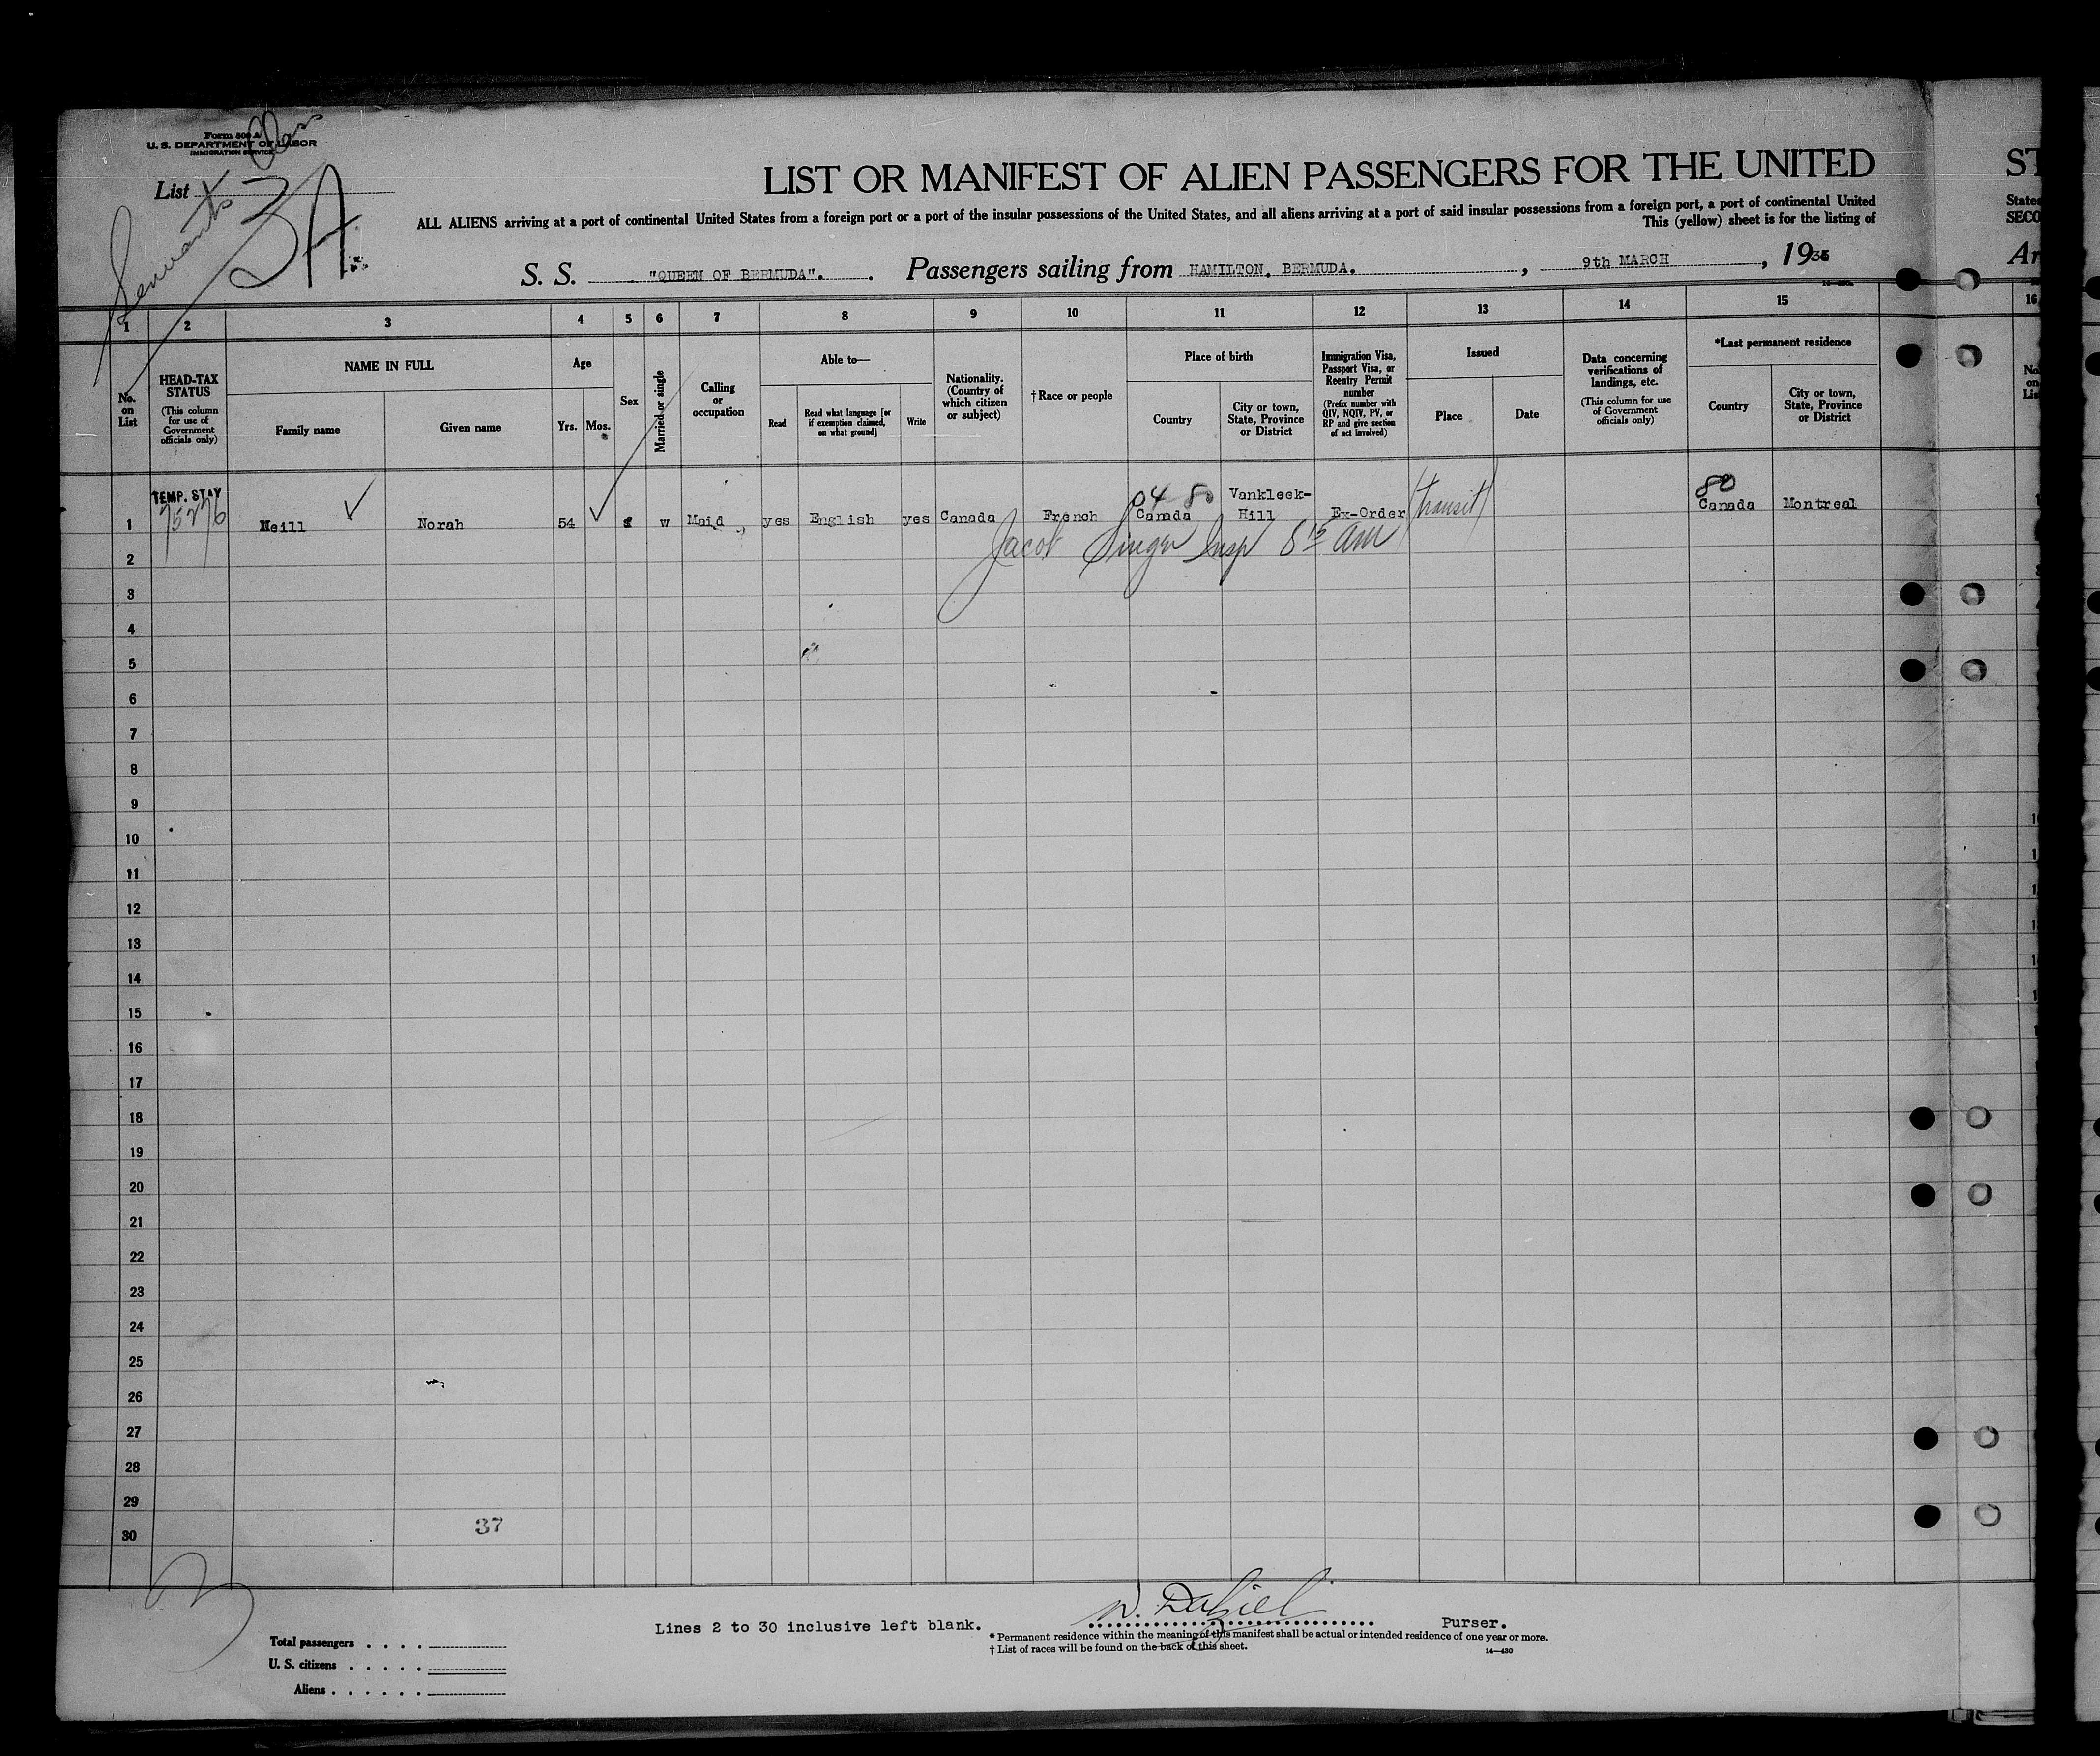 Form 500 A
U. S. DEPARTMENT OF LABOR
IMMIGRATION SERVICE
Class
List
Servants
3A
LIST OR MANIFEST OF ALIEN PASSENGERS FOR THE UNITED
ST
ALL ALIENS arriving at a port of continental United States from a foreign port or a port of the insular possessions of the United States, and all aliens arriving at a port of said insular possessions from a foreign port, a port of continental United
States
This (yellow) sheet is for the listing of
SECO
S. S. "QUEEN OF BERMUDA". Passengers sailing from HAMILTON, BERMUDA. , 9th MARCH , 19
Ar
1 2 3 4 5 6 7 8 9 10 11 12 13 14 15 16
No. on List
HEAD-TAX STATUS
(This column for use of Government officials only)
NAME IN FULL
Family name
Given name
Age
Yrs.
Mos.
Sex
Married or single
Calling or occupation
Able to—
Read
Read what language [or if exemption claimed, on what ground]
Write
Nationality. (Country of which citizen or subject)
†Race or people
Place of birth
Country
City or town, State, Province or District
Immigration Visa, Passport Visa, or Reentry Permit number
(Prefix number with QIV, NQIV, PV, or RP and give section of act involved)
Issued
Place
Date
Data concerning verifications of landings, etc.
(This column for use of Government officials only)
*Last permanent residence
Country
City or town, State, Province or District
No. on List
TEMP. STAY
04 80
80
1 Neill Norah 54 f w Maid yes English yes Canada French Canada Vankleek-Hill Ex-Order Transit Canada Montreal
Jacob Singer Insp 8 15 am
2
3
4
5
6
7
8
9
10
11
12
13
14
15
16
17
18
19
20
21
22
23
24
25
26
27
28
29
30
37
Lines 2 to 30 inclusive left blank. Purser.
* Permanent residence within the meaning of this manifest shall be actual or intended residence of one year or more.
† List of races will be found on the back of this sheet.
14—430
Total passengers
U. S. citizens
Aliens